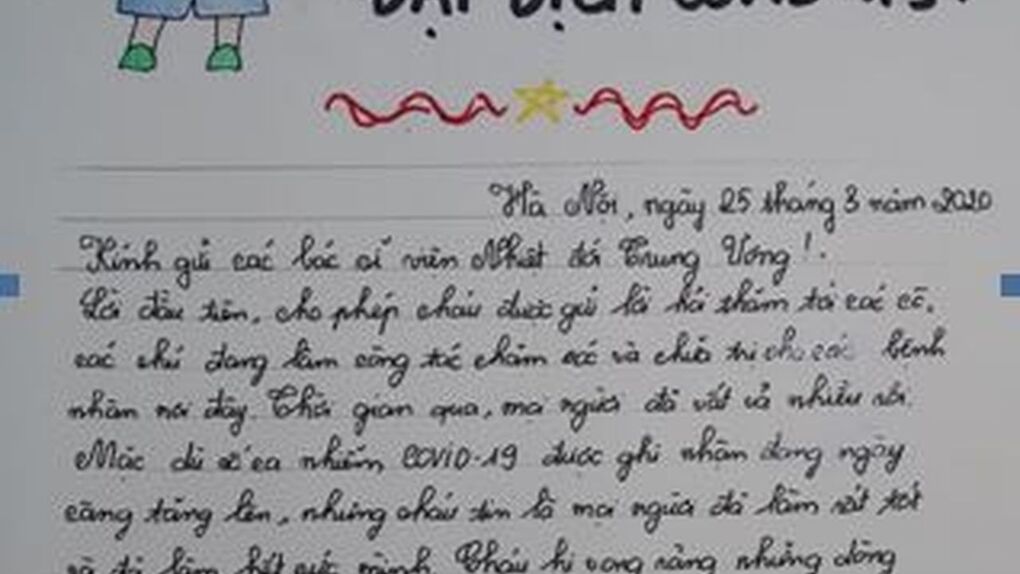 ĐẠI DỊCH COVID-19!
Hà Nội, ngày 25 tháng 3 năm 2020
Kính gửi các bác sĩ viện Nhiệt đới Trung Ương!
Lời đầu tiên, cho phép cháu được gửi lời hỏi thăm tới các cô,
các chú đang làm công tác chăm sóc và chữa trị cho các bệnh
nhân nơi đây. Thời gian qua, mọi người đã vất vả nhiều rồi.
Mặc dù số ca nhiễm COVID-19 được ghi nhận đang ngày
càng tăng lên, nhưng cháu tin là mọi người đã làm rất tốt
và đã làm hết sức mình. Cháu hi vọng rằng những dòng